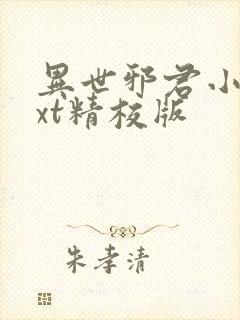 異世邪君小
xt精校版
朱孝清